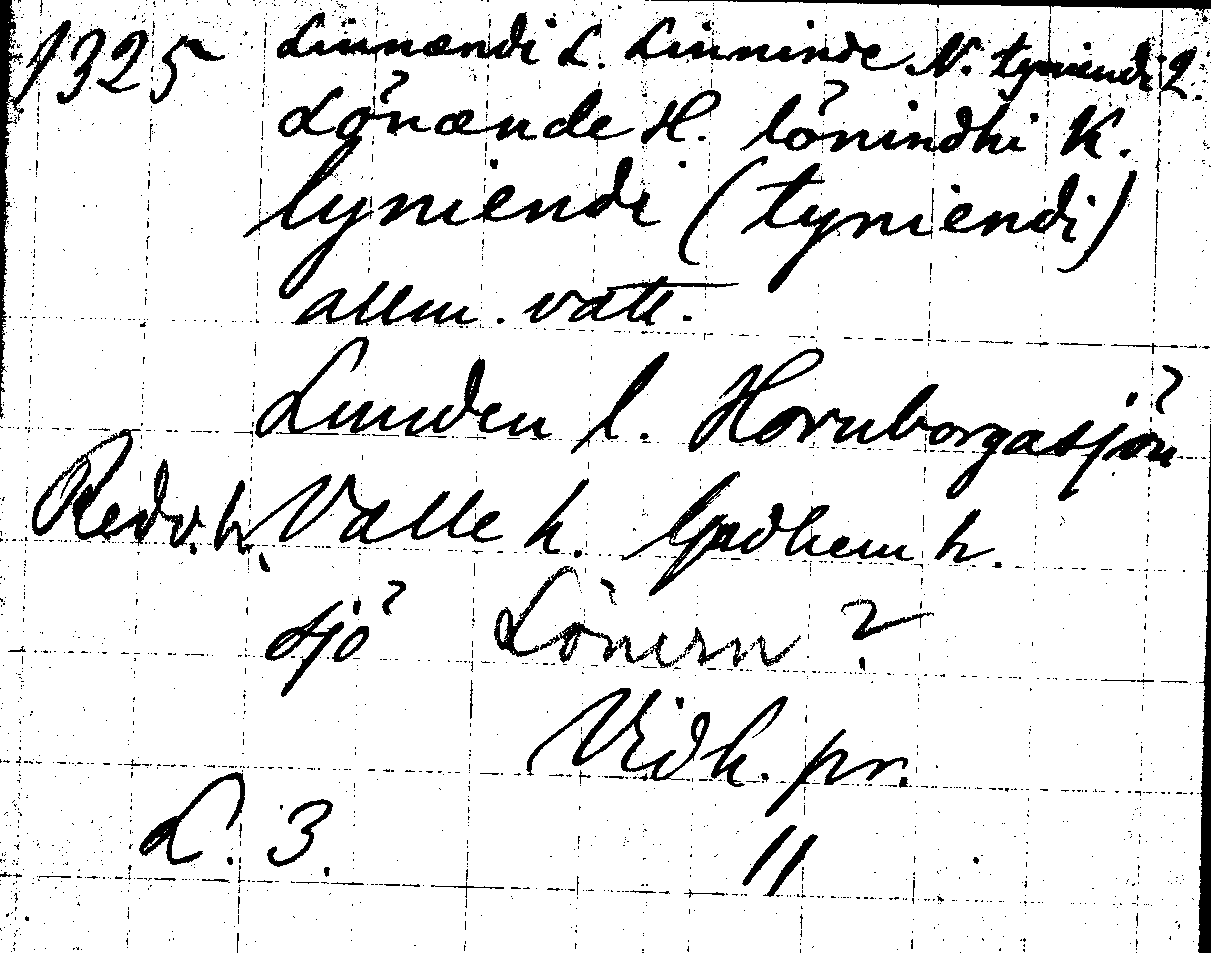 1325 Linnændi L. Linninde N. tyniendi L.
Lönænde H. lönindhi K.
lyniendi (tyniendi)
allm. vatt.
Lunden l. Hornborgasjön
Redv. h. Valle h. Gudhem h.
sjö Lönern ?
Vidh. pr.
L. 3. 11